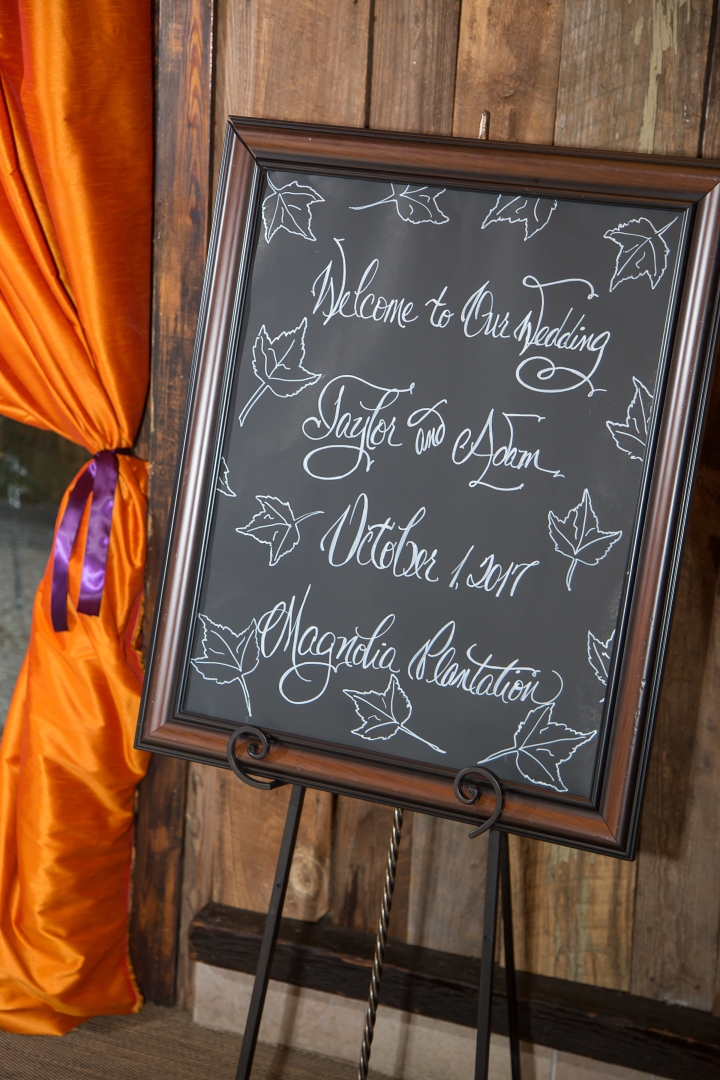 Welcome to Our Wedding
Taylor and Adam
October 1, 2017
Magnolia Plantation